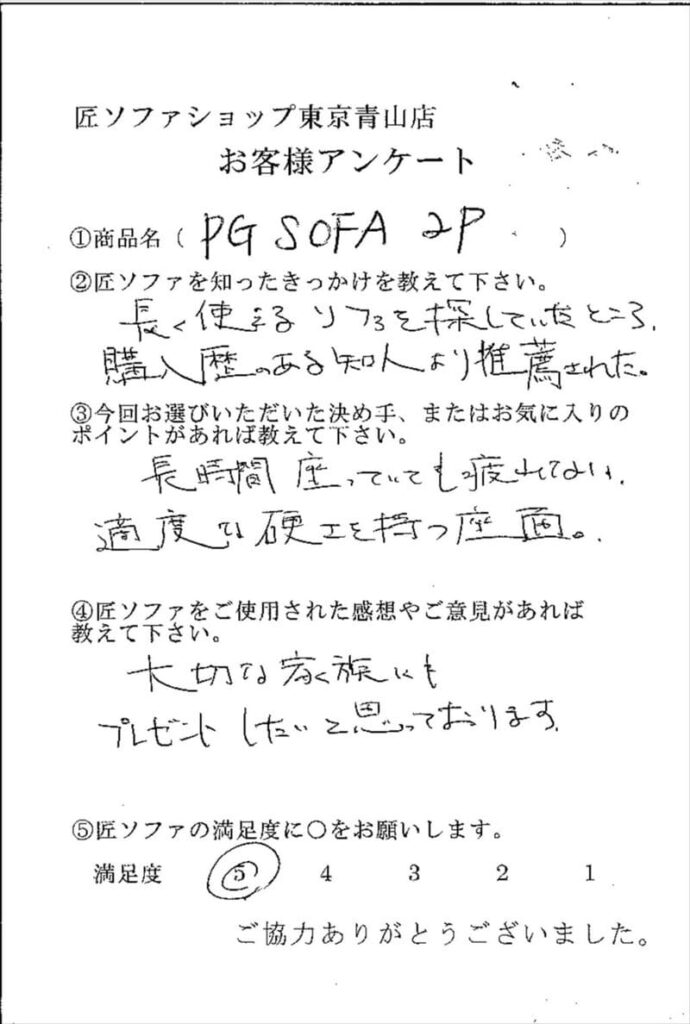 匠ソファショップ東京青山店
お客様アンケート
①商品名（ PG SOFA 2P ）
②匠ソファを知ったきっかけを教えて下さい。
長く使えるソファを探していたところ、
購入歴のある知人より推薦された。
③今回お選びいただいた決め手、またはお気に入りの
ポイントがあれば教えて下さい。
長時間座っていても疲れない、
適度な硬さを持つ座面。
④匠ソファをご使用された感想やご意見があれば
教えて下さい。
大切な家族にも
プレゼントしたいと思っております。
⑤匠ソファの満足度に○をお願いします。
満足度 5 4 3 2 1
ご協力ありがとうございました。